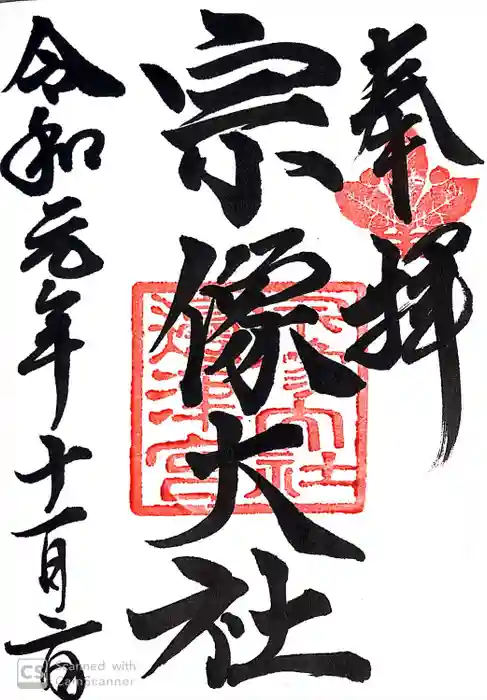 奉拝
宗像大社
宗像大社
邊津宮
令和元年十一月二日
CS Scanned with
CamScanner